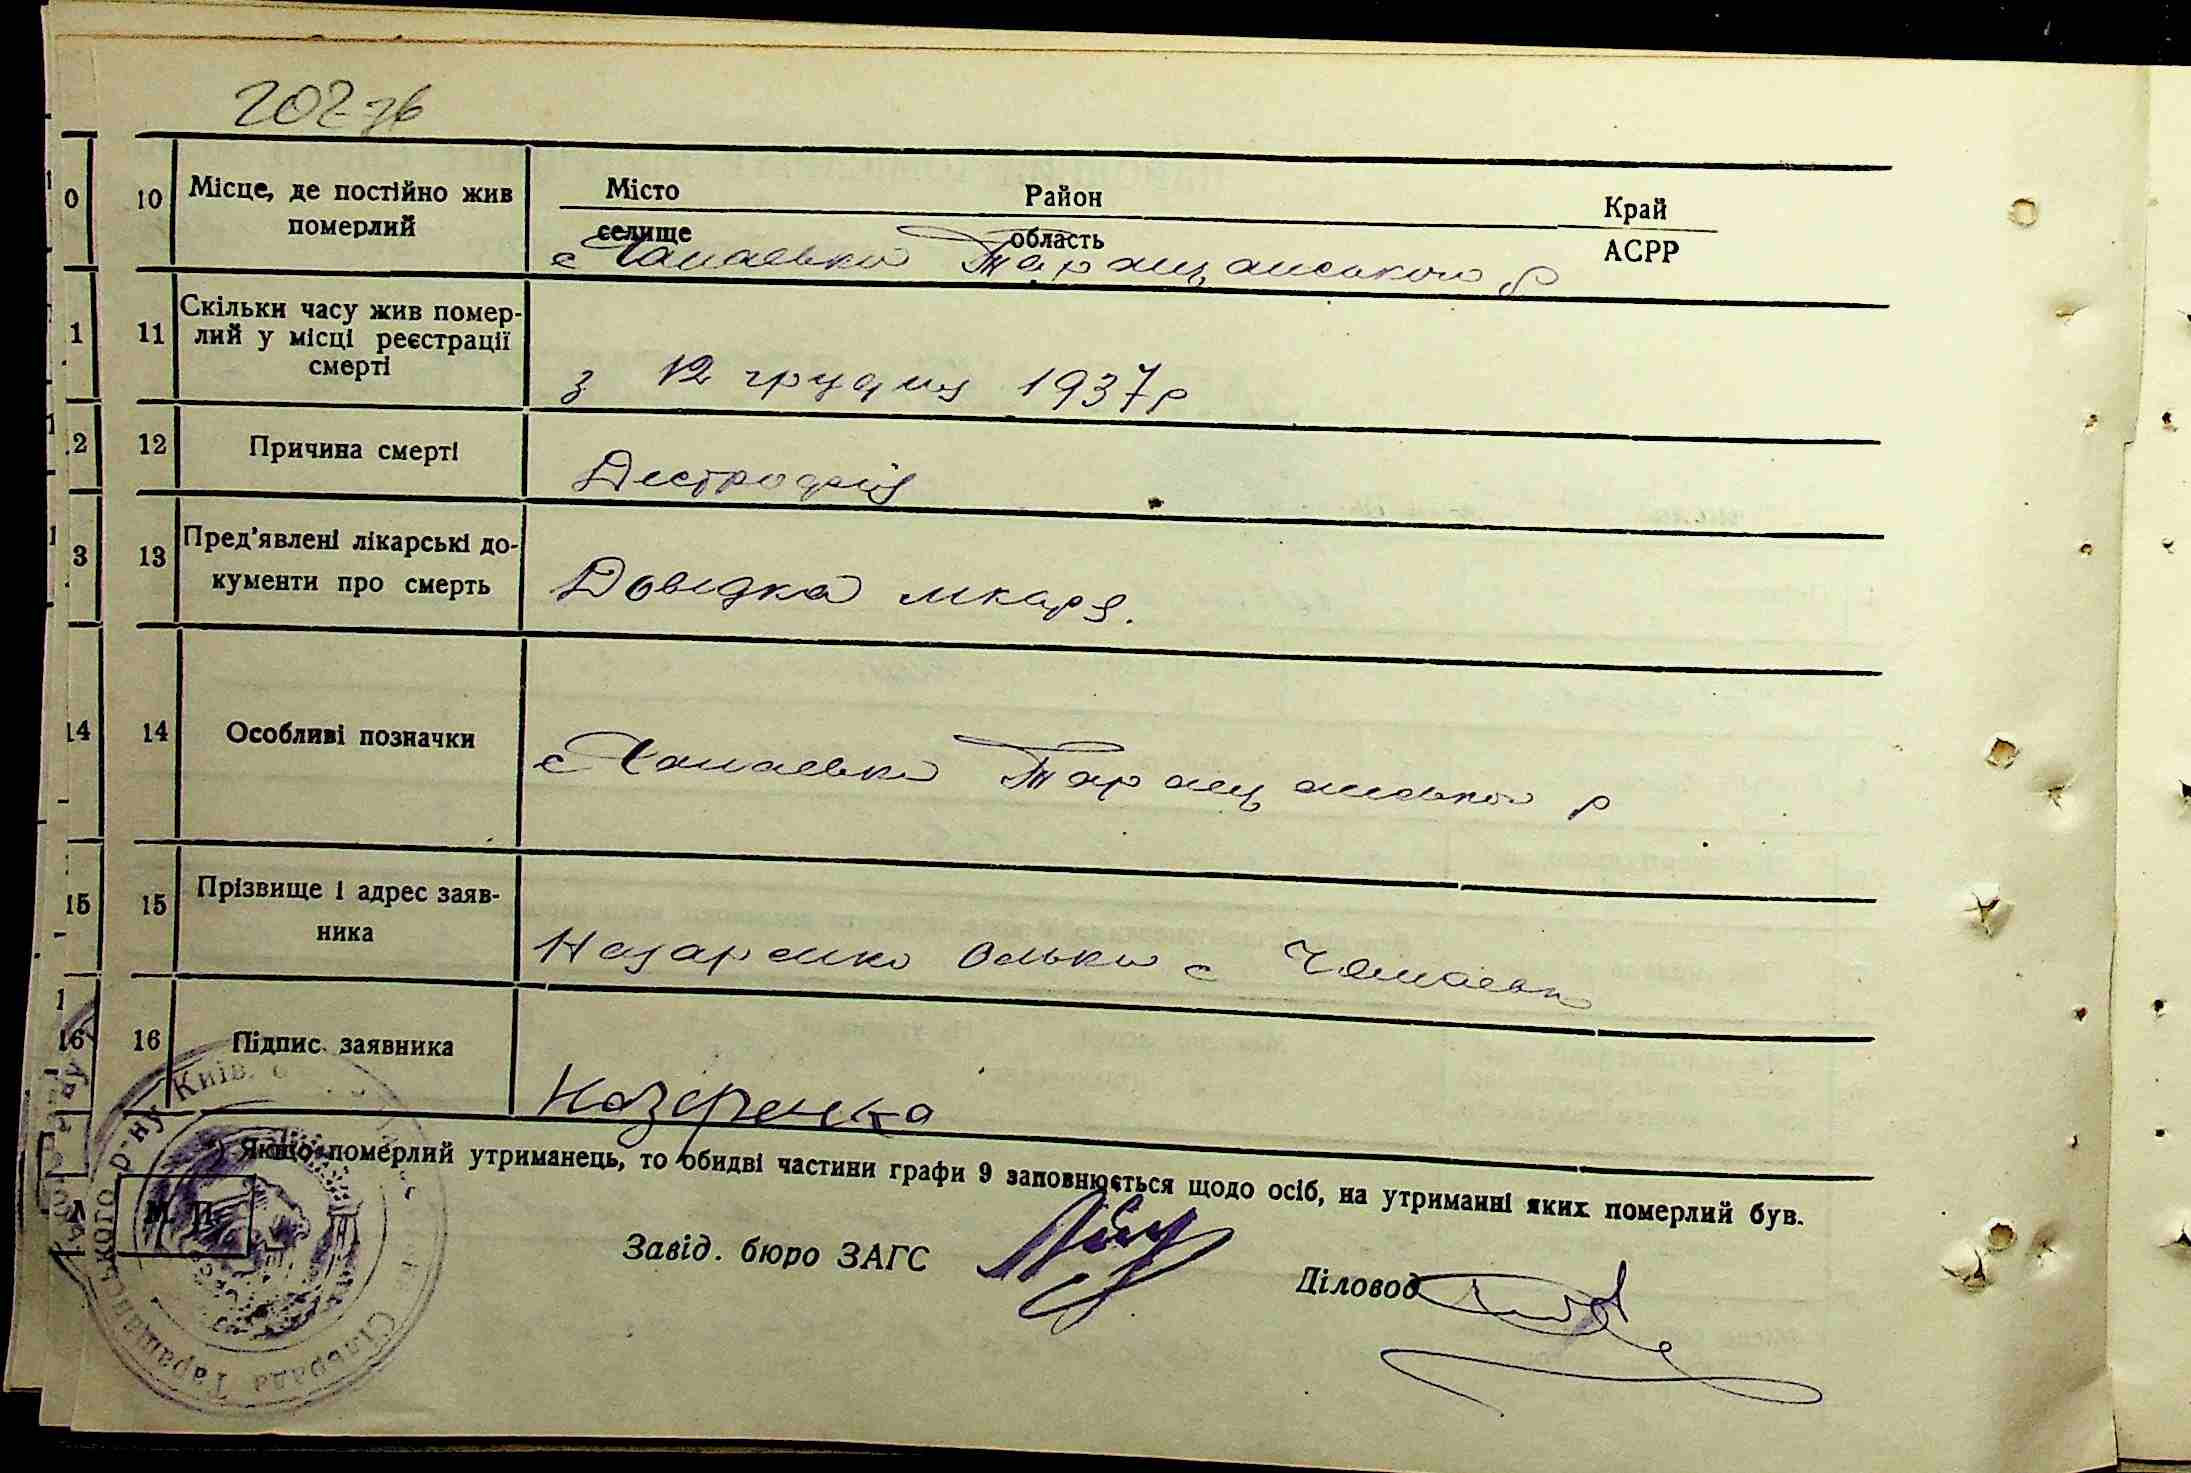 202 зв
10 Місце, де постійно жив померлий
Місто Район Край
селище область АСРР
с Чапаевка Таращанського р
11 Скільки часу жив помер-
лий у місці реєстрації
смерті
з 12 грудня 1937 р
12 Причина смерті
Дестрофія
13 Пред'явлені лікарські до-
кументи про смерть
Довідка лікаря.
14 Особливі позначки
с Чапаевка Таращанського р
15 Прізвище і адрес заяв-
ника
Назаренко Олька с Чапаевка
16 Підпис заявника
Назаренко
*) Якщо померлий утриманець, то обидві частини графи 9 заповнюється щодо осіб, на утриманні яких померлий був.
М. П.
Завід. бюро ЗАГС
Діловод
Сільрада Таращанського р-ну Київ.